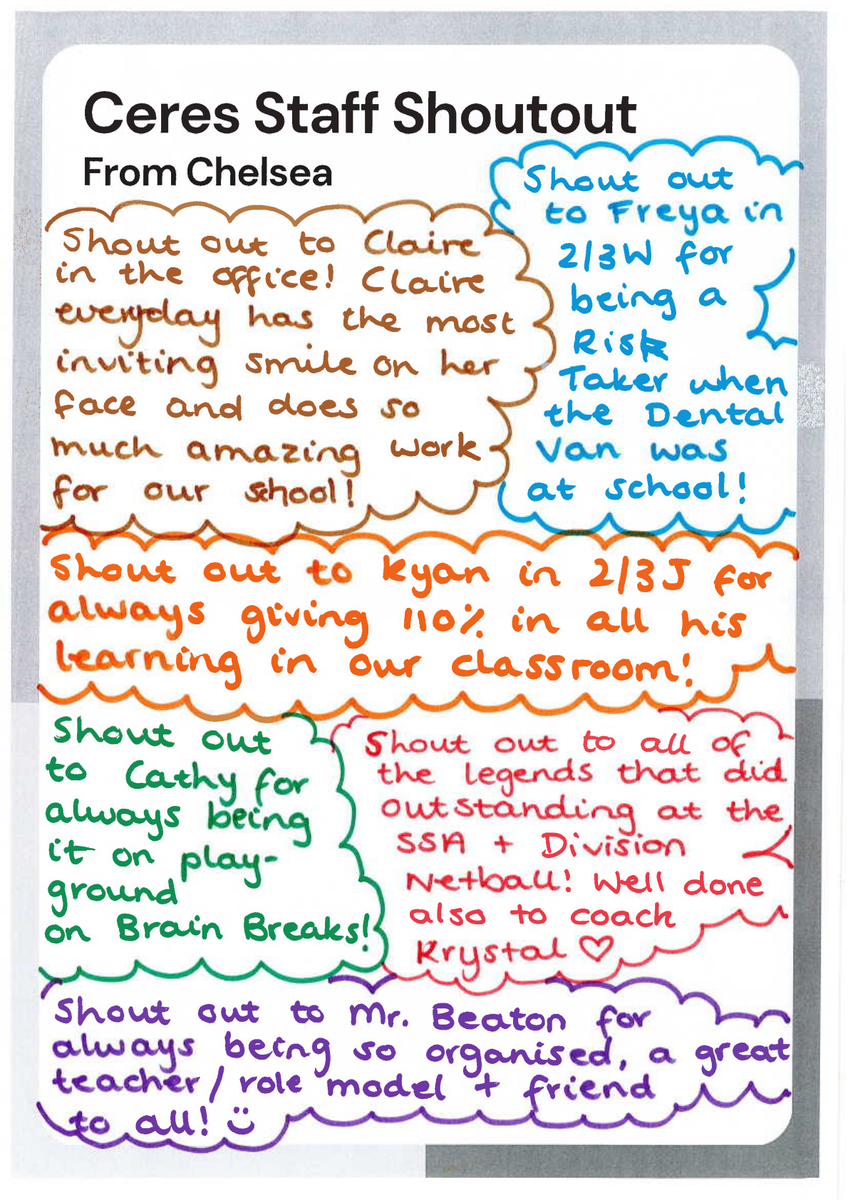 Ceres Staff Shoutout
From Chelsea
Shout out to Claire
in the office! Claire
everyday has the most
inviting smile on her
face and does so
much amazing work
for our school!
Shout out
to Freya in
2/3W for
being a
Risk
Taker when
the Dental
Van was
at school!
Shout out to Ryan in 2/3J for
always giving 110% in all his
learning in our classroom!
Shout out
to Cathy for
always being
it on play-
ground
on Brain Breaks!
Shout out to all of
the legends that did
outstanding at the
SSA + Division
Netball! Well done
also to coach
Krystal ♡
Shout out to Mr. Beaton for
always being so organised, a great
teacher/role model + friend
to all! ☺